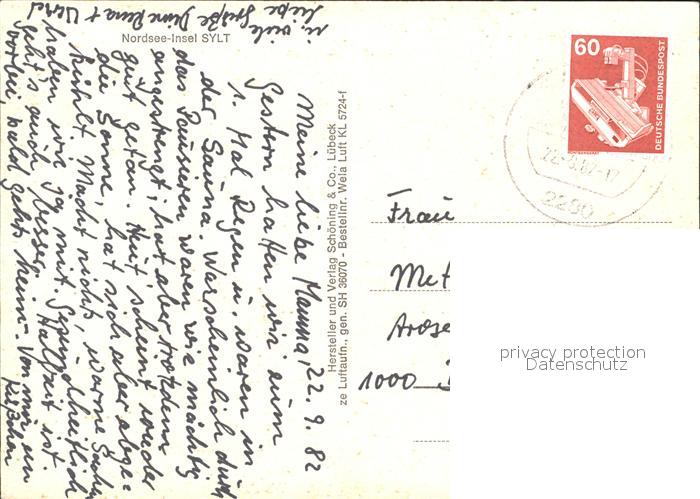 Nordsee-Insel SYLT
22. 9. 82
Meine liebe Mamma,
Gestern hatten wir zum
1. Mal Regen u. waren in
der Sauna. Warscheinlich durch
das Pausieren waren wir mächtig
angestrengt, hat aber trotzdem
gut getan. Heut scheint wieder
die Sonne, hat sich aber abge-
kühlt. Macht nichts, warme Sachen
haben wir ja mit. Gesundheitlich
geht's auch besser. Halbzeit ist
vorbei, bald geht's heim. Von mir ein
Küßchen
u. viele
liebe Grüße Deine Rena + Uwe
Hersteller und Verlag Schöning & Co., Lübeck
ze Luftaufn., gen. SH 36070 - Bestellnr. Wela Luft KL 5724-f
60
DEUTSCHE BUNDESPOST
22.-9.82-17
2280
Frau
Met
Arose
1000
privacy protection
Datenschutz